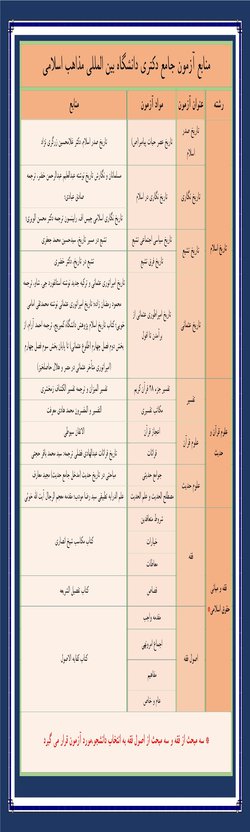 منابع آزمون جامع دکتری دانشگاه بین المللی مذاهب اسلامی
رشته عنوان آزمون مواد آزمون منابع
تاریخ اسلام
تاریخ صدر اسلام
تاریخ عصر حیات پیامبر(ص)
تاریخ صدر اسلام دکتر غلامحسین زرگری نژاد
تاریخ نگاری
تاریخ نگاری در اسلام
مسلمانان و نگارش تاریخ نوشته عبدالعلیم عبدالرحمن خضر، ترجمه
صادق عبادی؛
تاریخ نگاری اسلامی چیس اف. رابینسون ترجمه دکتر محسن الویری؛
تاریخ تشیع
تاریخ سیاسی اجتماعی تشیع
تشیع در مسیر تاریخ، سیدحسین محمد جعفری
تاریخ فرق تشیع
تشیع در تاریخ، دکتر خضری
تاریخ عثمانی
تاریخ امپراطوری عثمانی از
برآمدن تا افول
تاریخ امپراتوری عثمانی و ترکیه جدید نوشته استانفورد جی شاو، ترجمه
محمود رمضان زاده؛ تاریخ امپراتوری عثمانی نوشته
خویی؛ کتاب تاریخ اسلام پژوهش دانشگاه کمبریج، ترجمه احمد آرام، از
بخش دوم فصل چهارم (طلوع عثمانی) تا پایان بخش سوم فصل چهارم
(امپراتوری متأخر عثمانی در مصر و هلال حاصلخیز)
علوم قرآن و حدیث
تفسیر
تفسیر جزء ۲۸ قرآن کریم
تفسیر المیزان و ترجمه تفسیر الکشاف زمخشری
مکاتب تفسیری
التفسیر و المفسرون محمد هادی معرفت
علوم قرآن
اعجاز قرآن
الاتقان سیوطی
قرائات
تاریخ قرائات عبدالهادی فضلی ترجمه: سید محمد باقر حجتی
علوم حدیث
جوامع حدیثی
مباحثی در تاریخ حدیث (مدخل جامع حدیث) مجید معارف
مصطلح الحدیث و علم الحدیث
علم الدرایه تطبیقی سید رضا مودب؛ مقدمه معجم الرجال آیت الله خوئی
فقه و مبانی
حقوق اسلامی*
فقه
شروط متعاقدین
خیارات
معاطات
کتاب مکاسب شیخ انصاری
قصاص
کتاب تفصیل الشریعه
اصول فقه
مقدمه واجب
اجتماع امرونهی
مفاهیم
عام و خاص
کتاب کفایه الاصول
* سه مبحث از فقه و سه مبحث از اصول فقه به انتخاب دانشجو،مورد آزمون قرار می گیرد